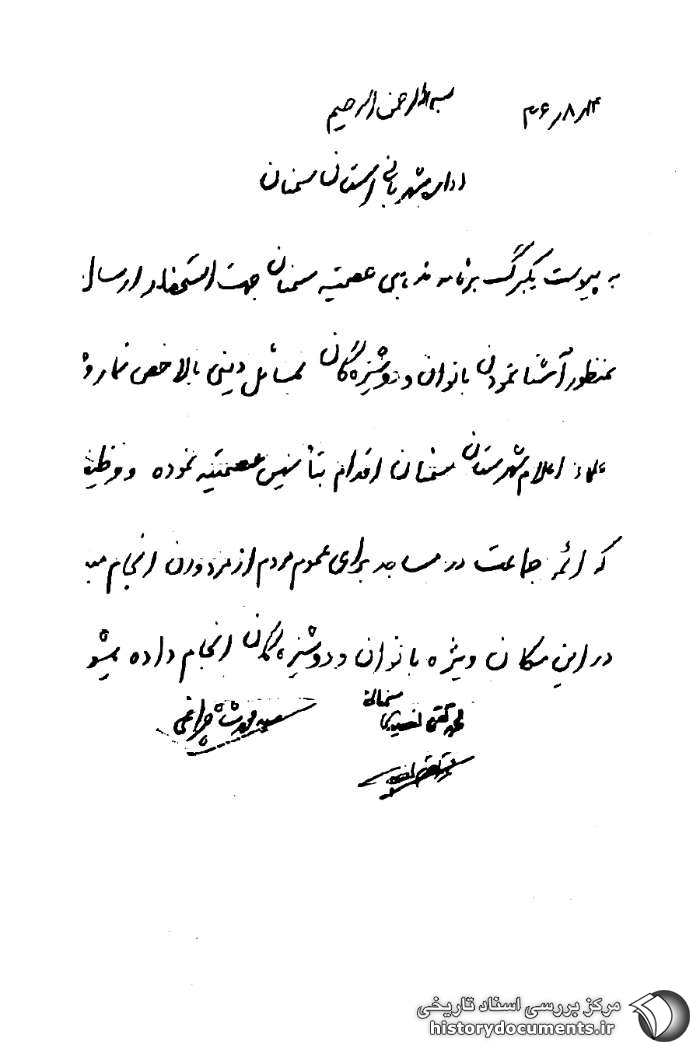 بسم الله الرحمن الرحیم
۴۶٫۸٫۲۴
اداره شهربانی استان سمنان
به پیوست یکبرگ برنامه مذهبی عصمتیه سمنان جهت استحضار ارسال
بمنظور آشنا نمودن بانوان و دوشیزه‌گان بمسائل دینی بالاخص نماز و
علماء اعلام شهرستان سمنان اقدام بتأسیس عصمتیه نموده و وظیفه
که ائمه جماعت در مساجد برای عموم مردم از مرد و زن انجام مید
در این مکان ویژه بانوان و دوشیزه‌گان انجام داده میشو
محمد تقی
سید محمد شاهچراغی
مرکز بررسی اسناد تاریخی
historydocuments.ir